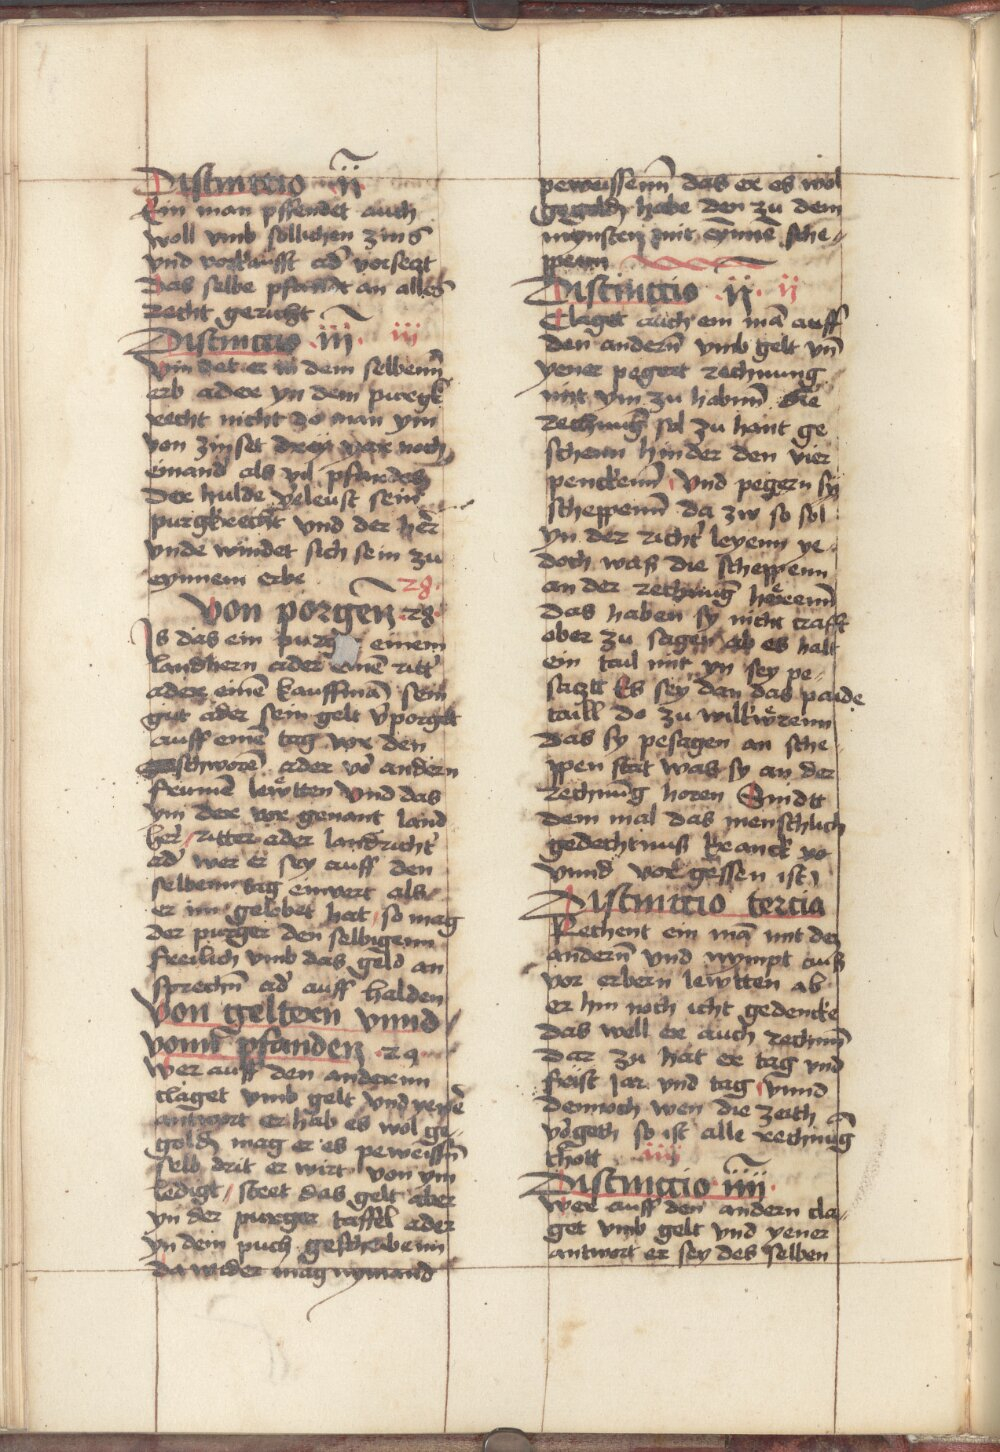 Distinctio .ij.
Ein man pffendet auch
woll vmb sollichen zins
vnd vorkaufft ad' vorsetzt
Das selbe pfandt an alles
recht gericht
Distinctio .iij. iij
Vin det er in dem selbenn
erb ader yn dem purgk
recht nicht do man ym
von zinset
eimand als vil pfandes
Der hulde veleust sein
purgkrecht vnd der her
vnde windet sich sein zu
eynnem erbe
28.
Von porgen .28.
Is das ein purg einem
landhern ader einē ritt'
ader einē kauffmā sein
gut ader sein gelt v'porget
auff einē tag vor den
schworē ader vō andern
frumē lewtten vnd das
ym der vor genant land
her / ritter ader landricht'
ad' wer er sey auff den
selbenn tag enwert als
er im gelobet hat / so mag
der purger den selbigenn
freilich vmb das geld an
sprechn̄ ad' auff halden
Von geltern vnnd
vonn pfanden .29
Wer auff den andernn
claget vmb gelt vnd yener
antwort er hab es wol ge-
gold' mag er es peweissn̄
selb drit er wirt von ym
ledigt / steet das gelt aber
yn der purger taffel ader
yn dem puch geschribenn
da wider mag nymand
peweissenn̄ das er es wol
gegold' habe den zu dem
mynsten mit eynnē sche-
ppenn
Distinctio .ij. ij
Claget auch ein mā auff
den andern̄ vmb gelt vn̄
yener pegert rechnung
mit ym zu habnn̄ die
rechnūg sol zu hant ge
schenn hinder den vier
penckenn̄ vnd pegern sy
scheppenn̄ da zw so sol
yn der richt' leyenn ye
doch was die scheppenn
an der rechnūg hörenn̄
das haben sy nicht crafft
ober zu sagen ab es halt
ein tail mit yn sey pe-
staztt Es sey dan das paide
taill do zu willkwrenn
das sy pesagen an sche-
ppen stat was sy an der
rechnūg horen Sindtt
dem mal das menschlich
gedechtnuß kranck vo
vnnd vor gessen ist
Distinctio tercia
Rechent ein mā mit dez
andern̄ vnd nympt auß
vor erbern lewtten ab
er hin noch icht gedencke
das well er auch rechnn̄
dar zu hat er tag vnd
frist Jar vnd tag vnnd
dennoch wen die zeith
v'geth so ist alle rechnūg
thott iiij
Distinctio .iiij.
Wer auff den andern cla-
get vmb gelt vnd yener
antwort er sey des selben